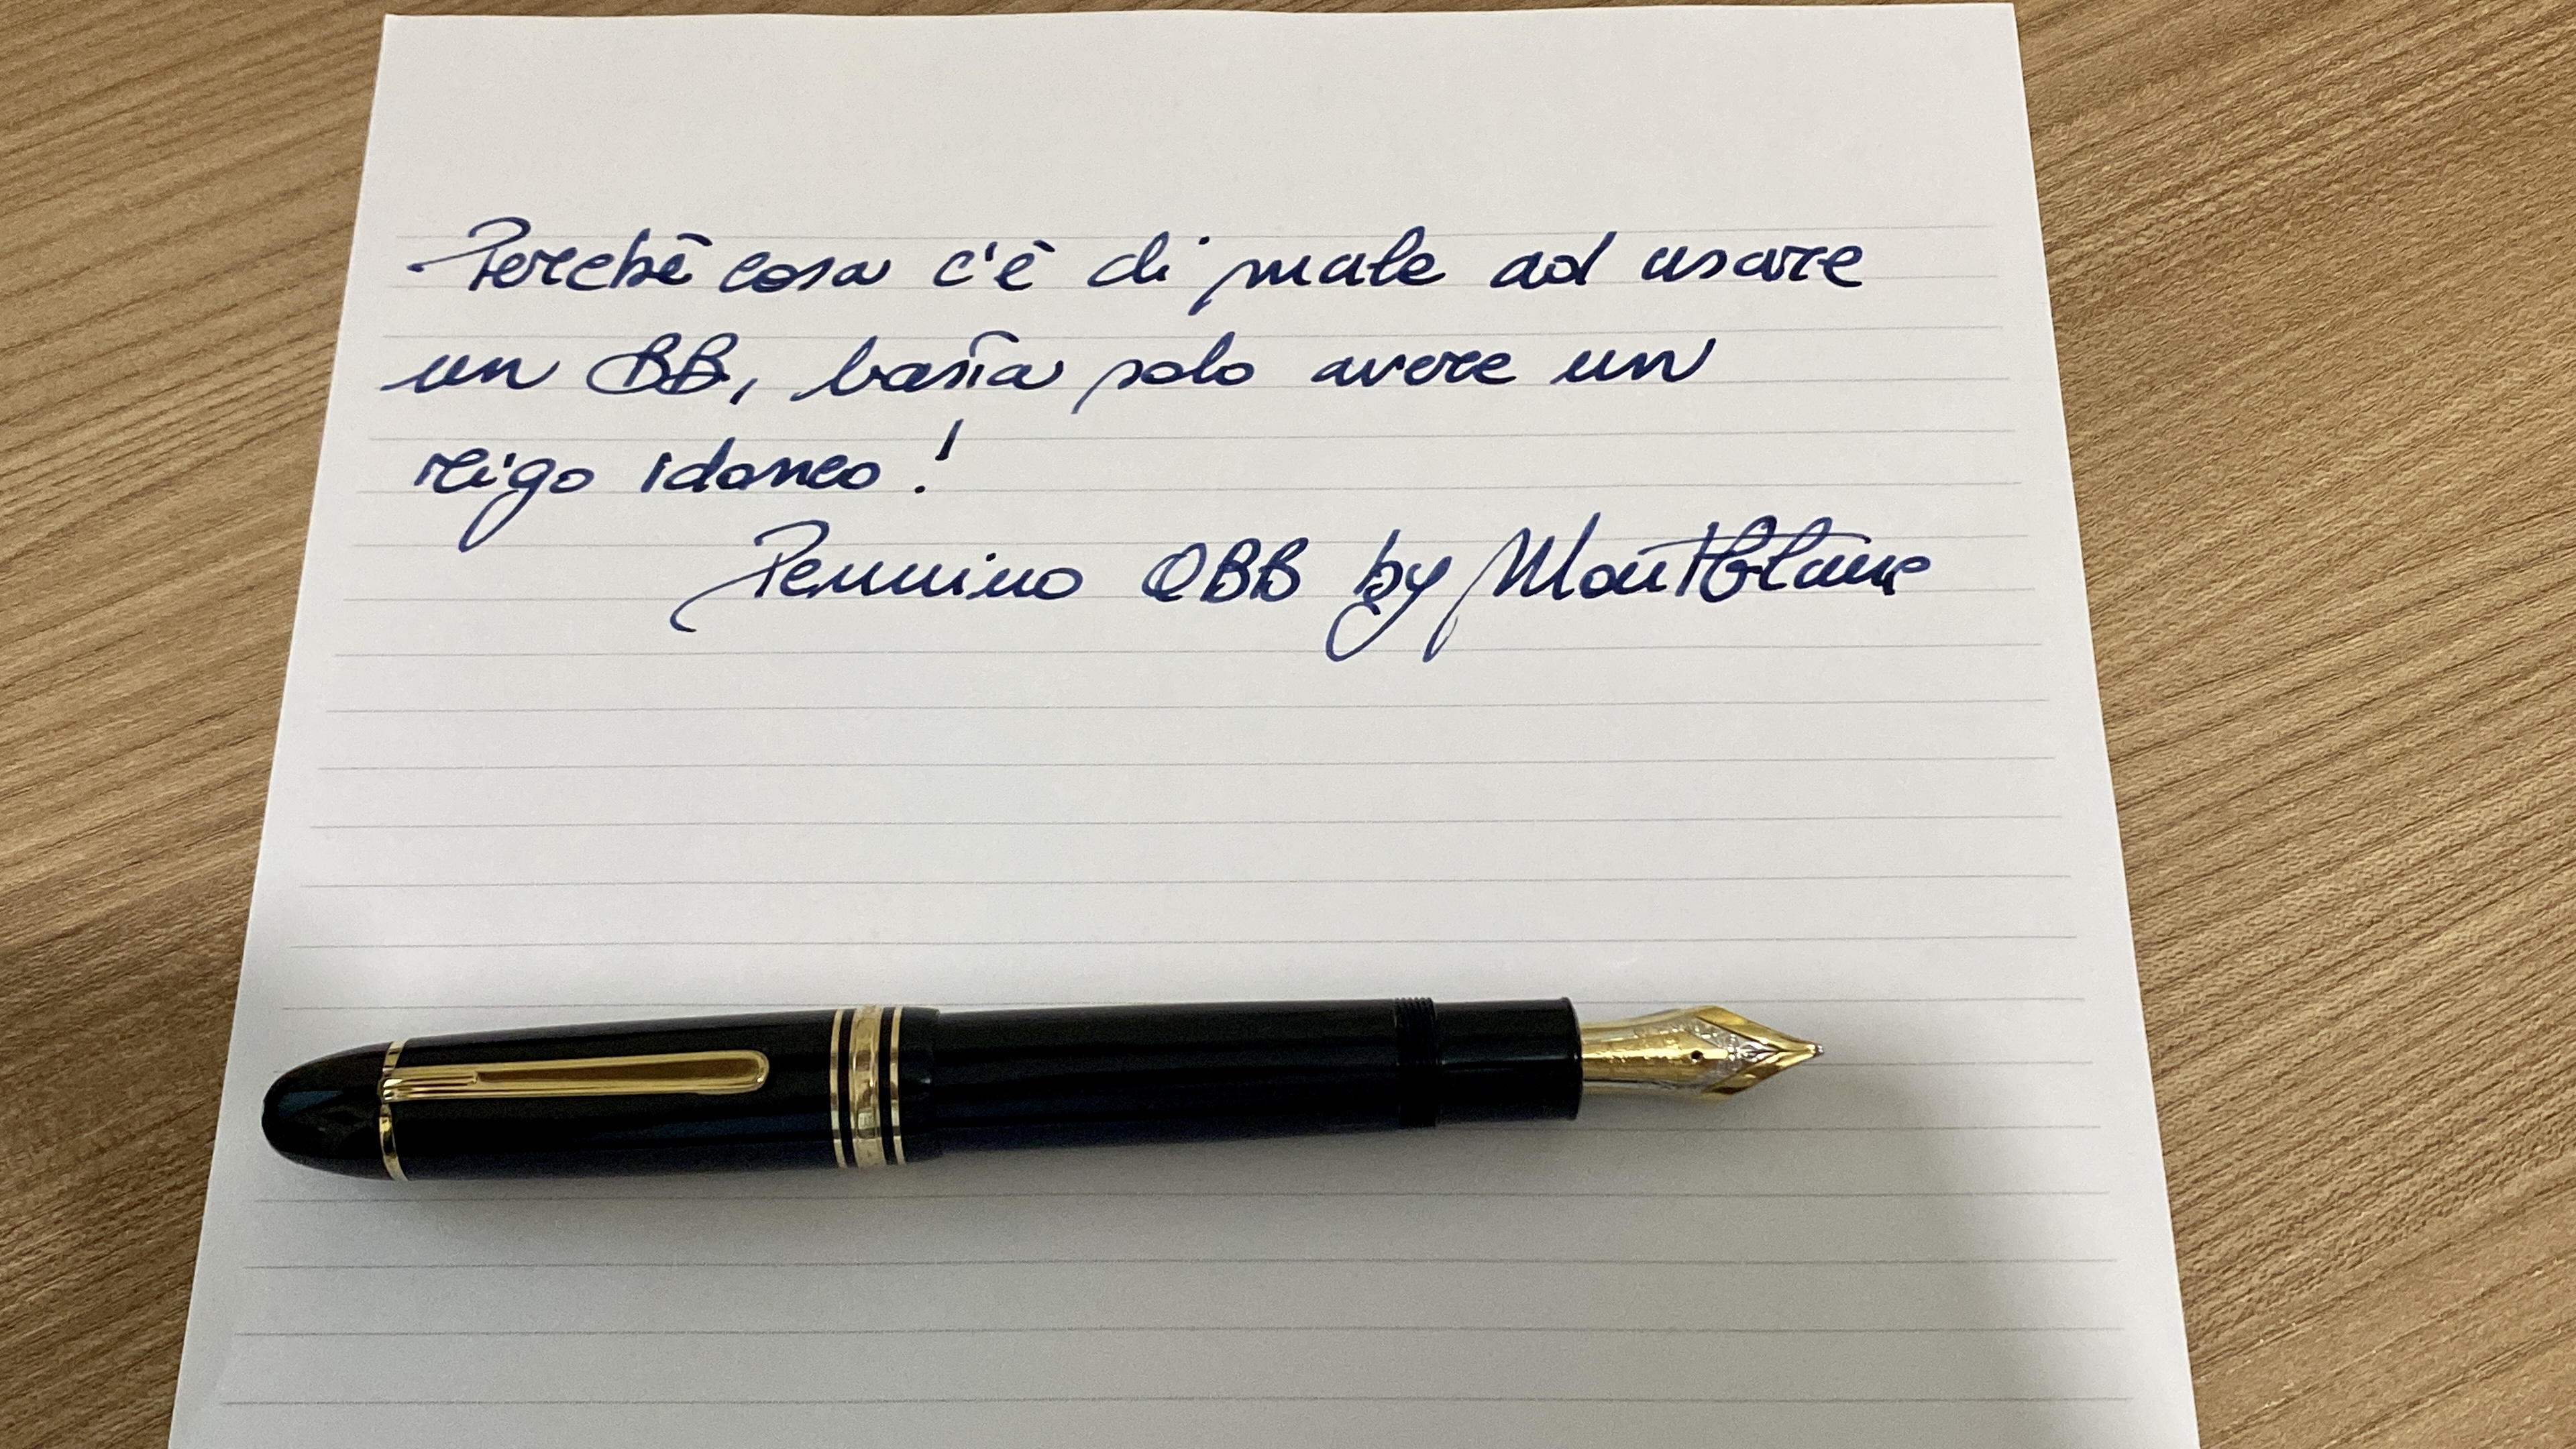 Perchè cosa c'è di male ad usare
un BB, basta solo avere un
rigo idoneo!
Pennino OBB by Montblanc